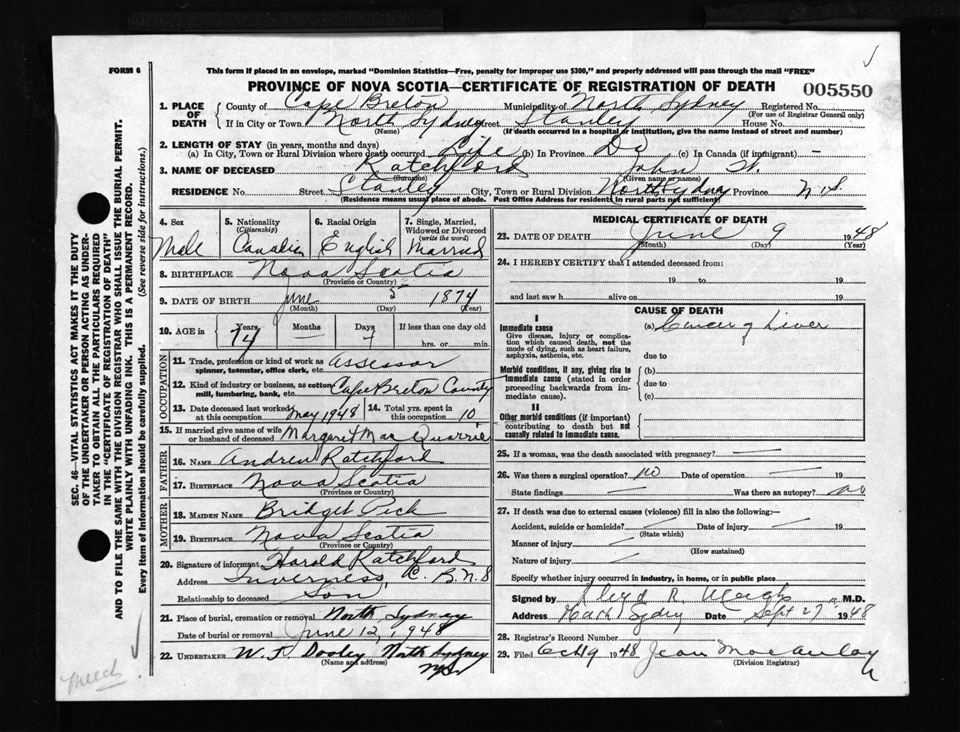 FORM 6
This form if placed in an envelope, marked "Dominion Statistics—Free, penalty for improper use $300," and properly addressed will pass through the mail "FREE"
PROVINCE OF NOVA SCOTIA—CERTIFICATE OF REGISTRATION OF DEATH
005550
1. PLACE OF DEATH County of Cape Breton Municipality of North Sydney Registered No.
(For use of Registrar General only)
If in City or Town North Sydney Street Stanley House No.
(Name) (If death occurred in a hospital or institution, give the name instead of street and number)
2. LENGTH OF STAY (in years, months and days)
(a) In City, Town or Rural Division where death occurred Life (b) In Province Do (c) In Canada (if immigrant) —
3. NAME OF DECEASED Ratchford John W.
(Surname) (Given name or names)
RESIDENCE No. Street Stanley City, Town or Rural Division North Sydney Province N.S.
(Residence means usual place of abode. Post Office Address for residents in rural parts not sufficient)
4. Sex Male
5. Nationality (Citizenship) Canadian
6. Racial Origin English
7. Single, Married, Widowed or Divorced (write the word) Married
8. BIRTHPLACE Nova Scotia
(Province or Country)
9. DATE OF BIRTH June 5 1874
(Month) (Day) (Year)
10. AGE in Years Months Days If less than one day old
74 — 4 hrs. or min.
OCCUPATION
11. Trade, profession or kind of work as spinner, teamster, office clerk, etc. Assessor
12. Kind of industry or business, as cotton mill, lumbering, bank, etc. Cape Breton County
13. Date deceased last worked at this occupation May 1948 14. Total yrs. spent in this occupation 10
15. If married give name of wife or husband of deceased Margaret MacQuarrie
FATHER
16. NAME Andrew Ratchford
17. BIRTHPLACE Nova Scotia
(Province or Country)
MOTHER
18. MAIDEN NAME Bridget
19. BIRTHPLACE Nova Scotia
(Province or Country)
20. Signature of informant Harold Ratchford
Address Inverness, C. B. N S
Relationship to deceased Son
21. Place of burial, cremation or removal North Sydney
Date of burial or removal June 12, 1948
22. UNDERTAKER W. J. Dooley North Sydney
(Name and address) N.S.
MEDICAL CERTIFICATE OF DEATH
23. DATE OF DEATH June 9 1948
(Month) (Day) (Year)
24. I HEREBY CERTIFY that I attended deceased from:
19 to 19
and last saw h alive on 19
CAUSE OF DEATH
I
Immediate cause
Give disease, injury or complication which caused death, not the mode of dying, such as heart failure, asphyxia, asthenia, etc.
(a) Cancer of Liver
due to
Morbid conditions, if any, giving rise to immediate cause (stated in order proceeding backwards from immediate cause).
(b)
due to
(c)
II
Other morbid conditions (if important) contributing to death but not causally related to immediate cause.
25. If a woman, was the death associated with pregnancy? —
26. Was there a surgical operation? no Date of operation — 19
State findings — Was there an autopsy? no
27. If death was due to external causes (violence) fill in also the following:—
Accident, suicide or homicide? — Date of injury — 19
(State which)
Manner of injury —
(How sustained)
Nature of injury —
Specify whether injury occurred in industry, in home, or in public place
Signed by Lloyd R M.D.
Address North Sydney Date Sept 27 1948
28. Registrar's Record Number
29. Filed Oct 19 1948 Jean MacAulay
(Division Registrar)
SEC. 46—VITAL STATISTICS ACT MAKES IT THE DUTY
OF THE UNDERTAKER OR PERSON ACTING AS UNDER-
TAKER TO OBTAIN ALL THE PARTICULARS REQUIRED
IN THE "CERTIFICATE OF REGISTRATION OF DEATH"
AND TO FILE THE SAME WITH THE DIVISION REGISTRAR WHO SHALL ISSUE THE BURIAL PERMIT.
WRITE PLAINLY WITH UNFADING INK. THIS IS A PERMANENT RECORD.
Every item of Information should be carefully supplied. (See reverse side for instructions.)